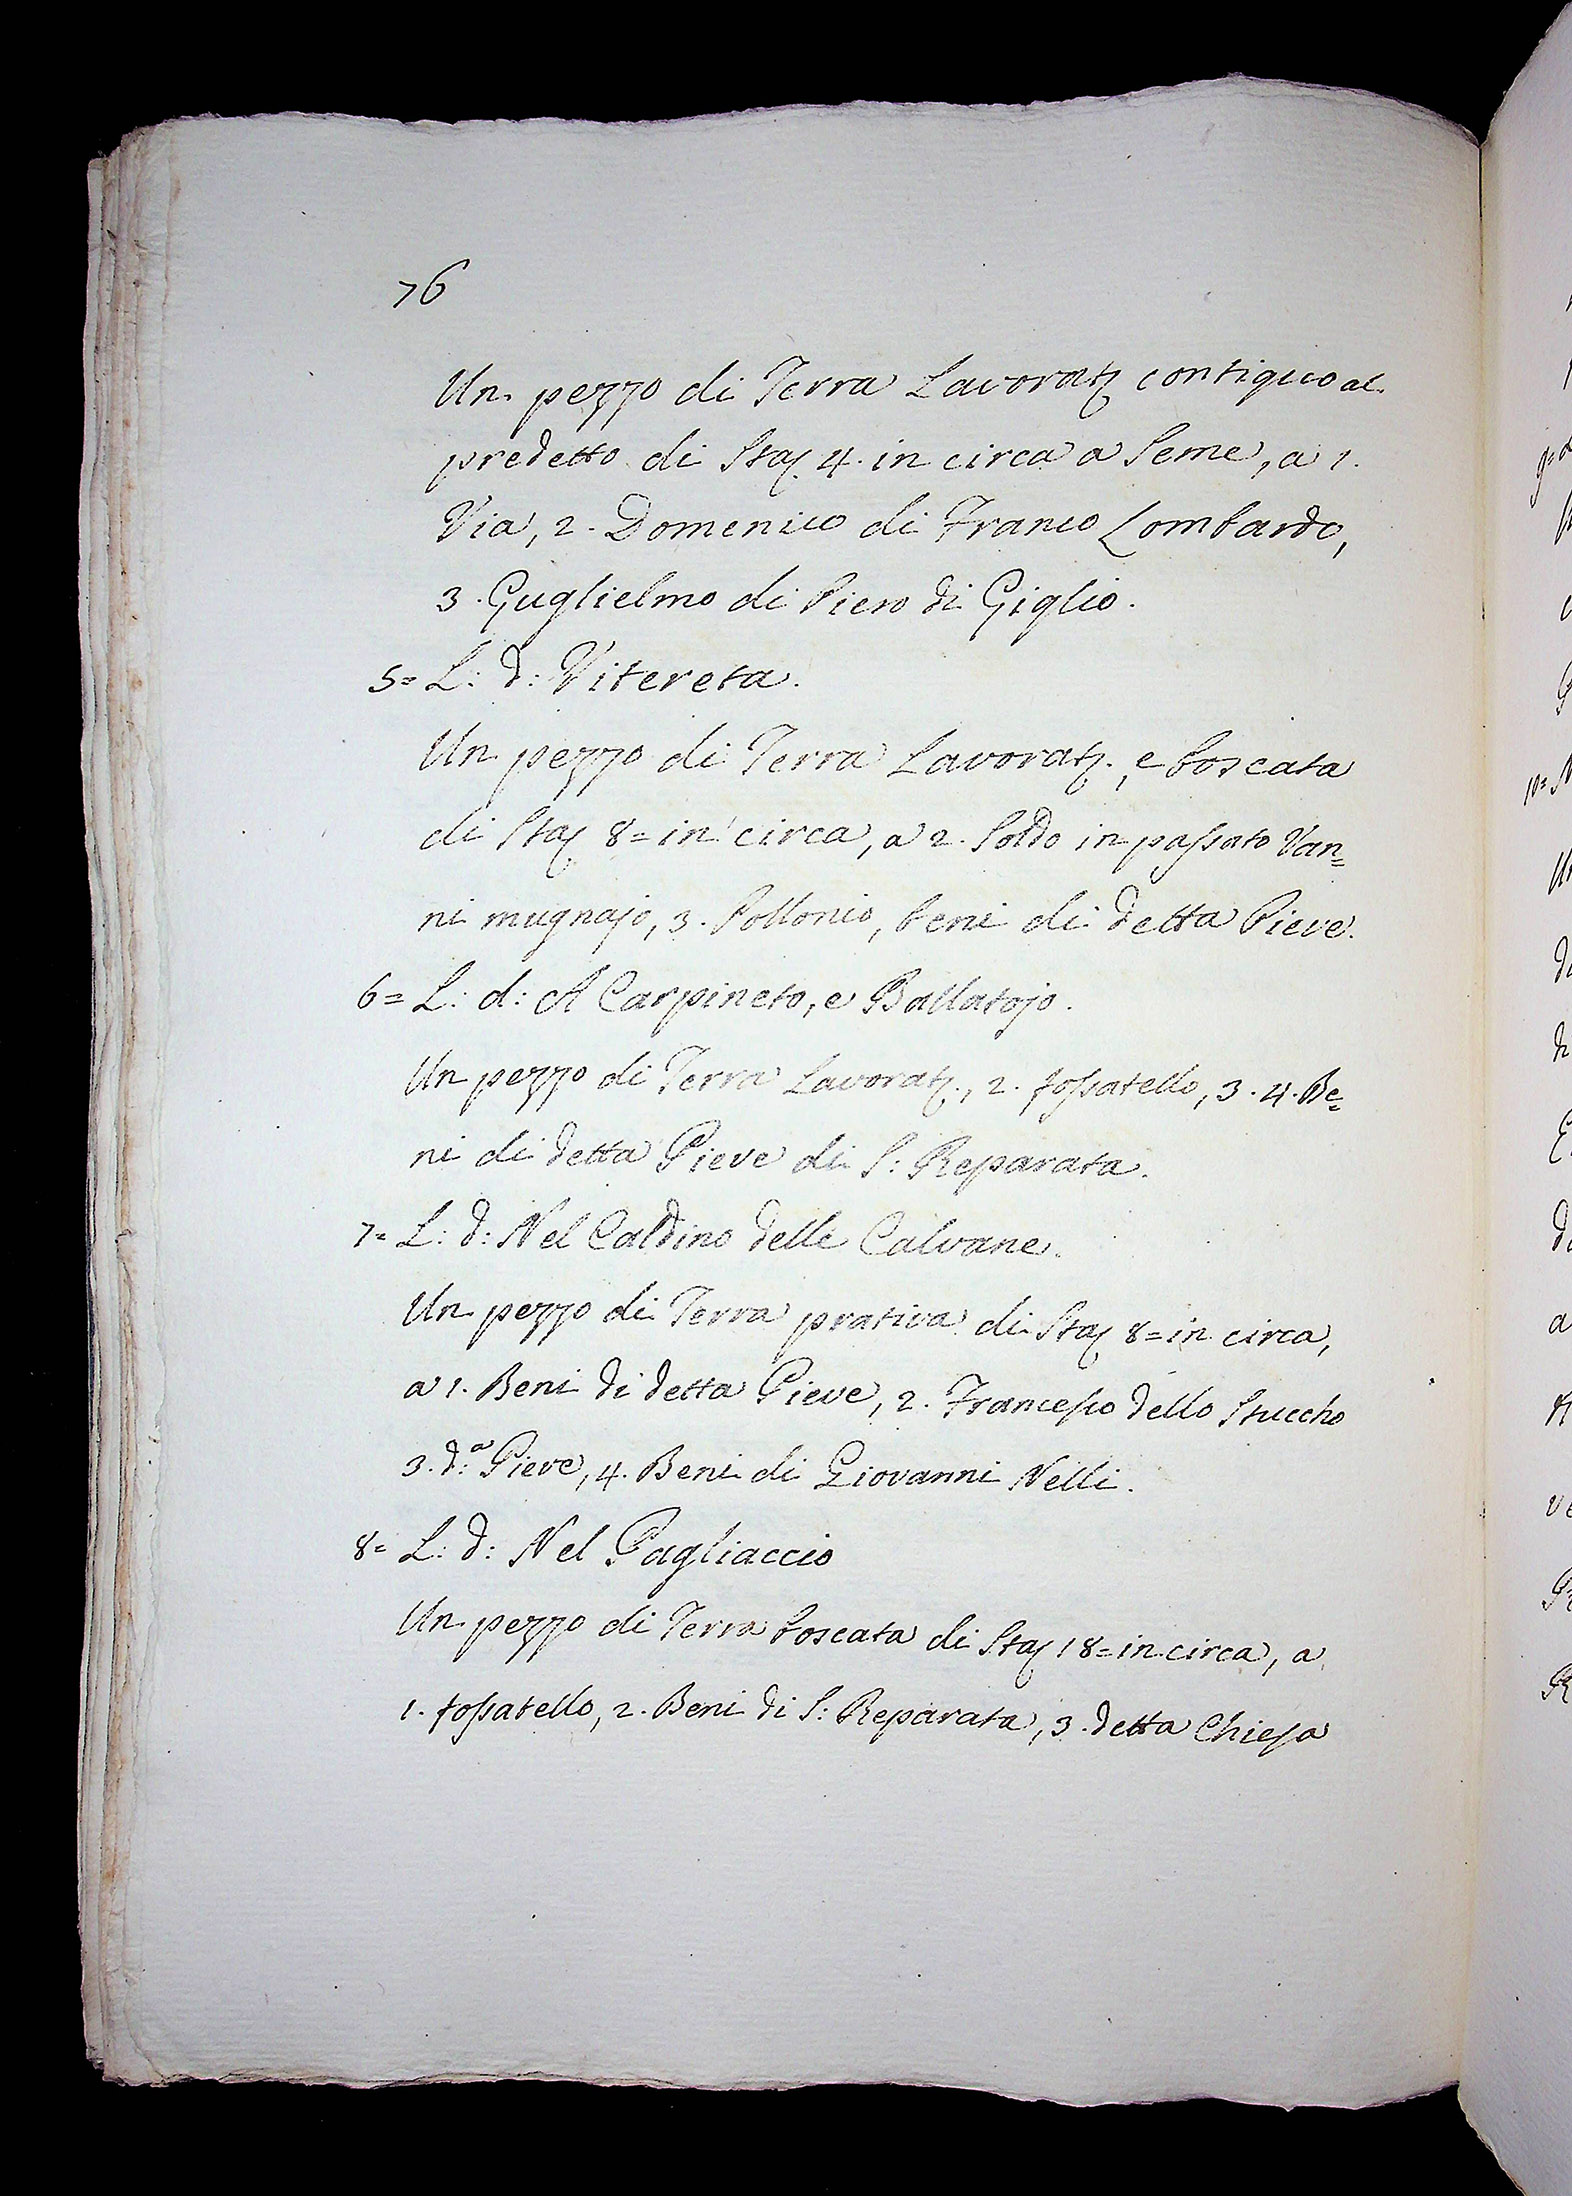 76
Un pezzo di Terra Lavoratª contiguo al
predetto di Staª 4. in circa a Seme, a 1.
Via, 2. Domenico di Franco Lombardo,
3. Guglielmo di Piero di Giglio.
5= L: d: Vitereta.
Un pezzo di Terra Lavoratª., e boscata
di Staª 8= in circa, a 2. Soldo in passato Van=
ni mugnajo, 3. Pollonio, beni di detta Pieve.
6= L: d: A Carpineto, e Ballatojo.
Un pezzo di Terra Lavoratª., 2. fossatello, 3. 4. Be=
ni di detta Pieve di S: Reparata.
7= L: d: Nel Caldino delle Calvane.
Un pezzo di Terra prativa di Staª 8= in circa,
a 1. Beni di detta Pieve, 2. Francesco dello Stuccho
3. d:ª Pieve, 4. Beni di Giovanni Nelli.
8= L: d: Nel Pagliaccio
Un pezzo di Terra boscata di Staª 18= in circa, a
1. fossatello, 2. Beni di S: Reparata, 3. detta Chiesa